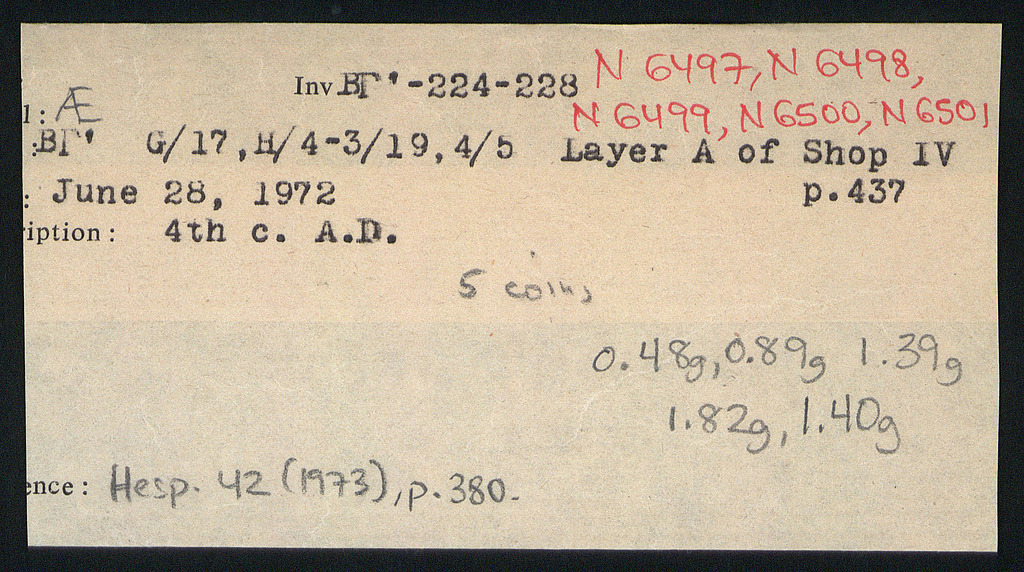 Inv ΒΓ'-224-228 N 6497, N 6498,
l: Æ N 6499, N 6500, N 6501
:ΒΓ' G/17,H/4-3/19,4/5 Layer A of Shop IV
: June 28, 1972 p.437
iption: 4th c. A.D.
5 coins
0.48g, 0.89g 1.39g
1.82g, 1.40g
ence: Hesp. 42 (1973), p. 380.